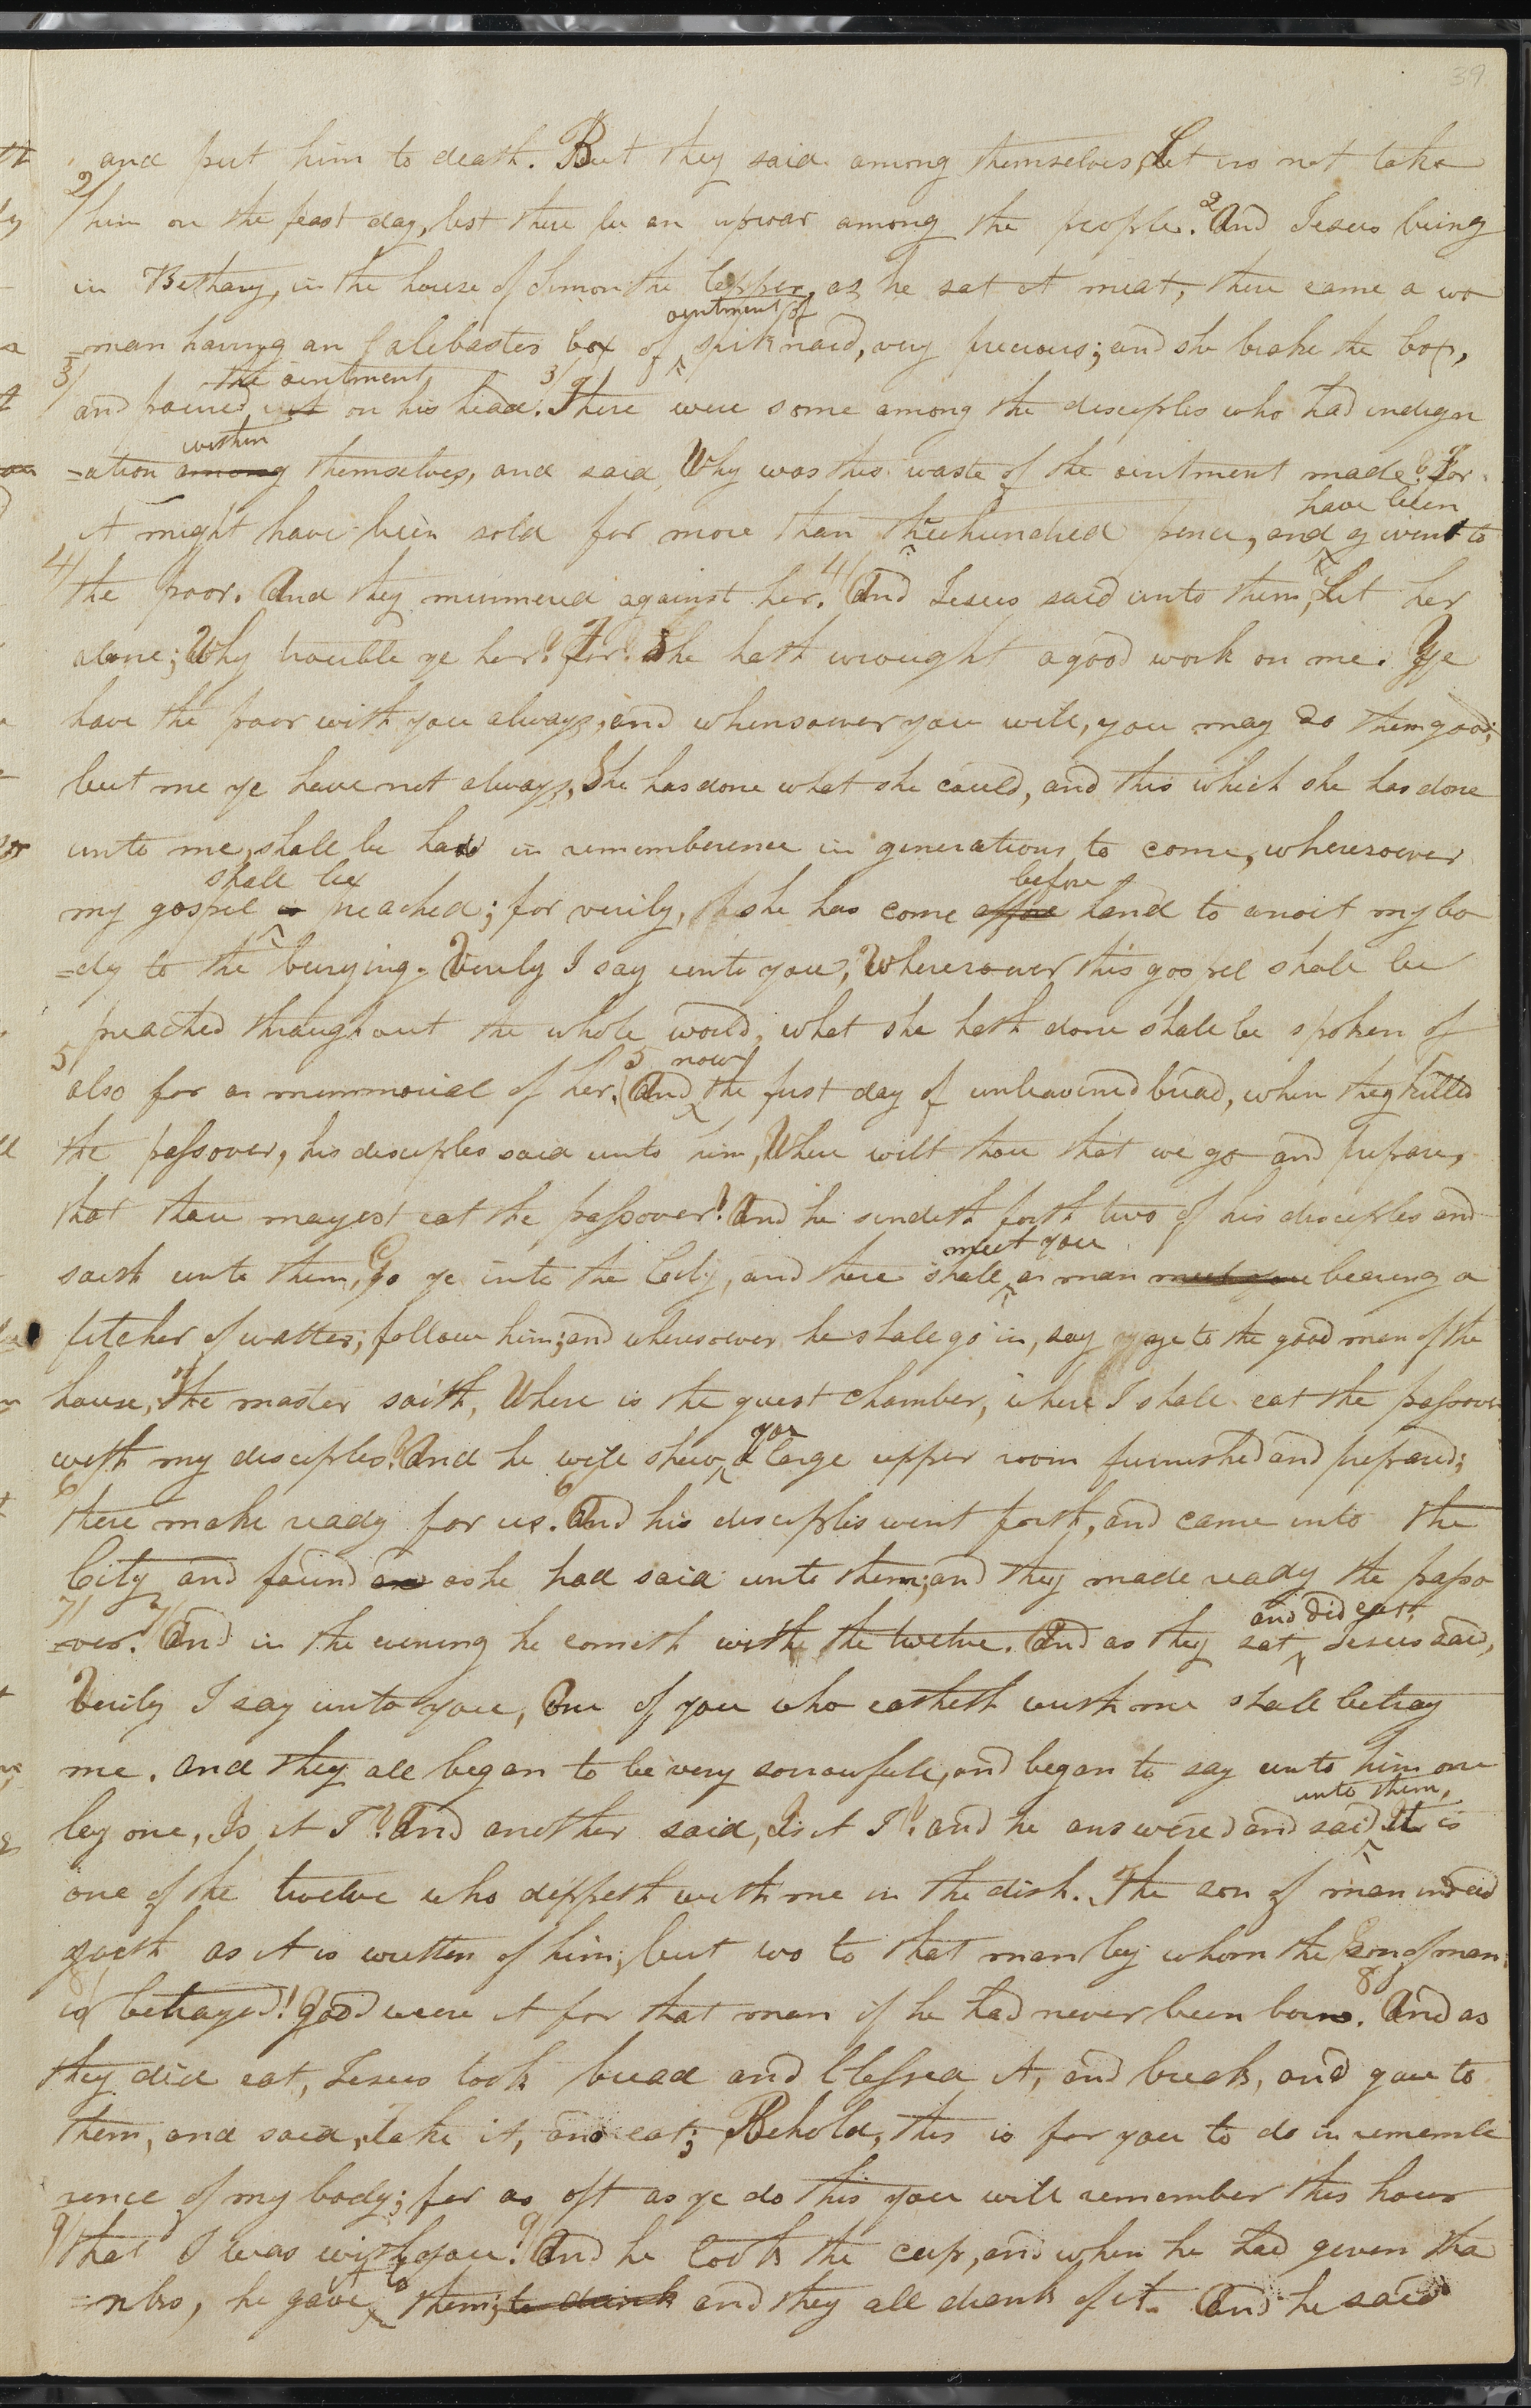 39
and put him to death. But they said among themselves, Let us not take
2/ him on the feast day, lest there be an uproar among the people. 2 And Jesus being
in Bethany, in the house of Simon the lepper, as he sat at meat, there came a wo
ointment of
=man having an alibaster box of spiknard, very precious; and she brake the box,
the ointment
3/ and poured it on his head. 3/ There were some among the disciples who had indign
within
=ation among themselves, and said, Why was this waste of the ointment made? For
have been
it might have been sold for more than three hundred pence, and given to
4/ the poor. And they murmered against her. 4/ And Jesus said unto them, Let her
alone; Why trouble ye her? For She hath wrought a good work on me. Ye
have the poor with you always, and whensoever you will, you may do them good;
but me ye have not always, She has done what she could, and this which she has done
unto me, shall be had in rememberence in generations to come, wheresoever
shall be before
my gospel is preached; for verily, she has come afore hand to anoit my bo
=dy to the burying. Verily I say unto you, Wheresoever this gospel shall be
preached throughout the whole world, what she hath done shall be spoken of
5 5 now
also for a memmorial of her. And the first day of unleavened bread, when they killed
the passover, his disciples said unto him, Where wilt thou that we go and prepare,
that thou mayest eat the passover? And he sendeth forth two of his disciples and
meet you
saith unto them, Go ye into the City, and there shall a man meet you bearing a
pitcher of watter; follow him; and wheresoever he shall go in, say ye to the good man of the
house, The master saith, Where is the guest chamber, where I shall eat the passover
you
with my disciples? And he will shew a large upper room furnished and prepared;
6/ there make ready for us. 6/ And his disciples went forth, and came into the
City and found as he had said unto them; and they made ready the passo
and did eat,
7/ =ver. 7/ And in the evening he cometh with the twelve. And as they sat Jesus said,
Verily I say unto you, One of you who eatheth with me shall betray
me. and they all began to be very sorrowfull, and began to say unto him one
unto them,
by one, Is it I? And another said, Is it I? and he answered and said It is
one of the twelve who dippeth with me in the dish. The son of man indeed
goeth as it is written of him; but wo to that man by whom the Son of man
8/ is betrayed! Good were it for that man if he had never been born. 8 And as
they did eat, Jesus took bread and blessed it, and break, and gave to
them, and said, Take it, and eat; Behold, this is for you to do in rememb
rence of my body; for as oft as ye do this you will remember this hour
9/ that I was with you. 9/ And he took the cup, and when he had given tha
it to
=nks, he gave them, to drink and they all drank of it. And he said